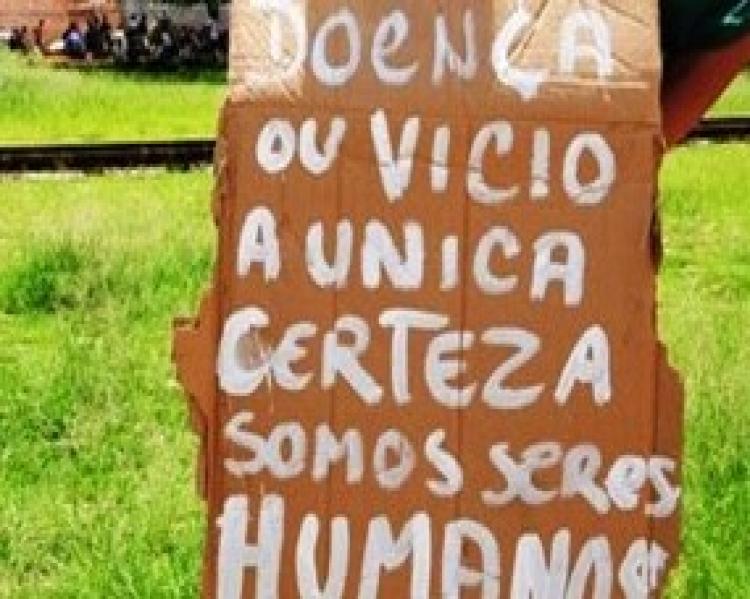 DOENÇA
OU VICIO
A UNICA
CERTEZA
SOMOS SERES
HUMANOS